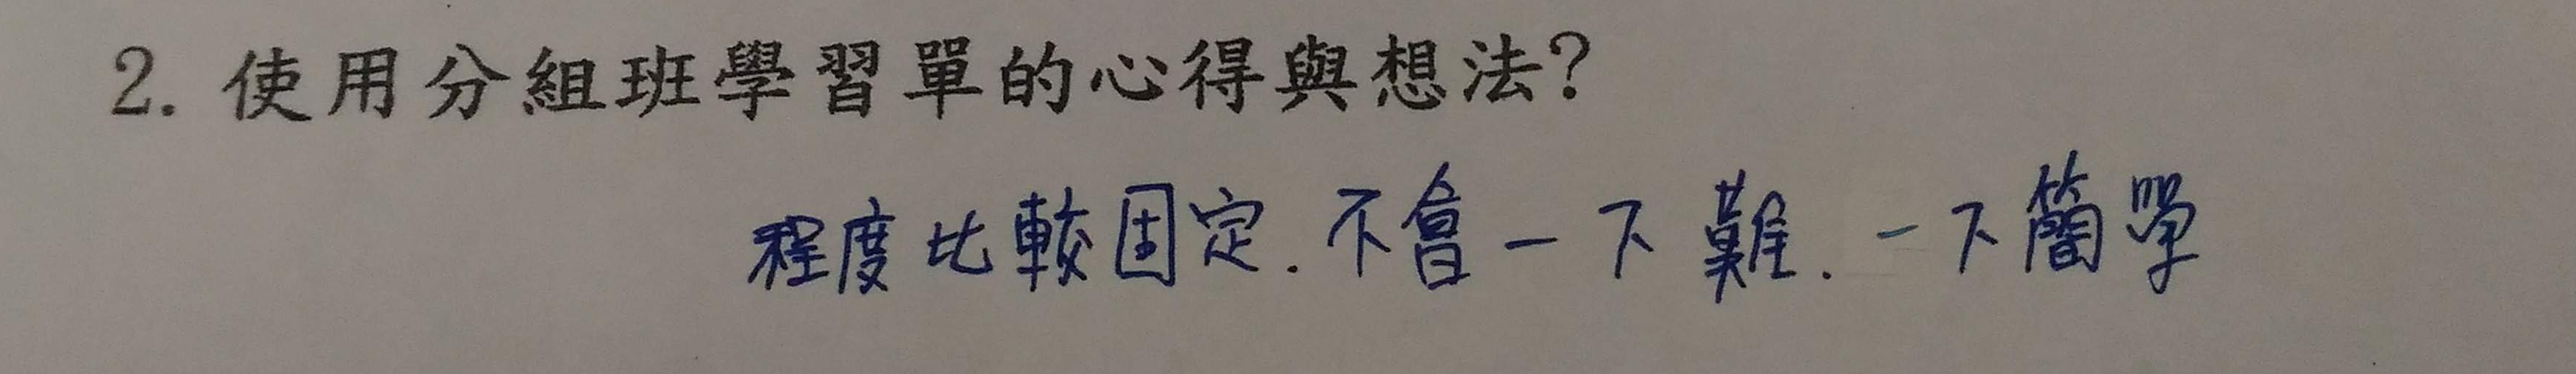 2. 使用分組班學習單的心得與想法?
程度比較固定.不會一下難.一下簡單